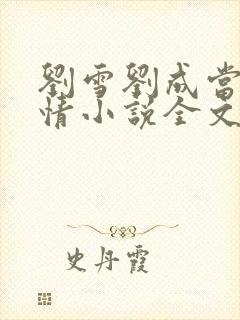 劉雪劉成當
情小説全文
史丹霞